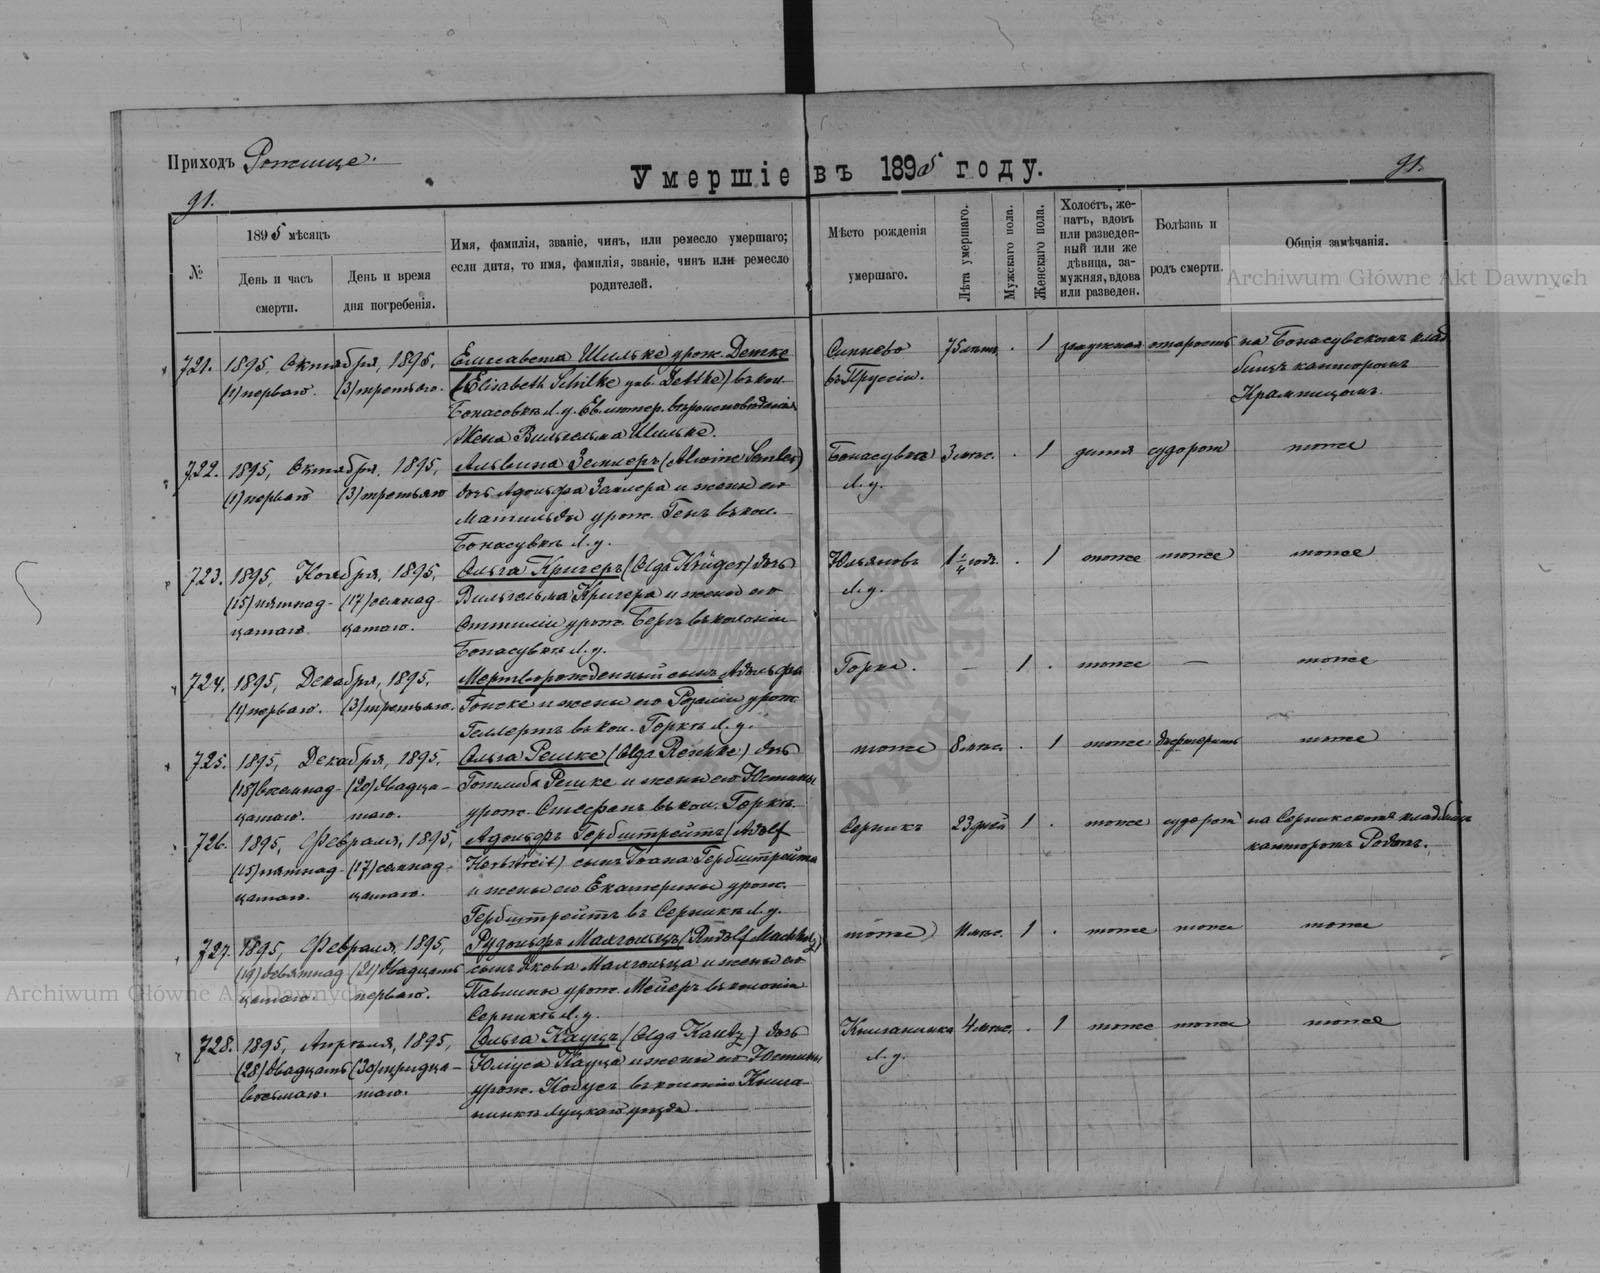 Приходъ Рожище.
Умершіе въ 1895 году.
91.
91.
№
1895 мѣсяцъ
День и часъ смерти.
День и время дня погребенія.
Имя, фамилія, званіе, чинъ, или ремесло умершаго;
если дитя, то имя, фамилія, званіе, чинъ или ремесло
родителей.
Мѣсто рожденія
умершаго.
Лѣта умершаго.
Мужскаго пола.
Женскаго пола.
Холостъ, же-
натъ, вдовъ
или разведен-
ный или же
дѣвица, за-
мужняя, вдова
или разведен.
Болѣзнь и
родъ смерти.
Общія замѣчанія.
Archiwum Główne Akt Dawnych
721. 1895, Октября, 1895, Елисавета Шильке урож. Детке 75 лѣтъ . 1 замужняя старость на Бонасувском клад
(1) перваго. (3) третьяго. (Elisabeth Schilke geb. Dettke) въ кол. въ Пруссіи. бищѣ канторомъ
Бонасовкѣ Л. у. Ев. лютер. вѣроисповѣданія
Жена Вильгельма Шильке.
722. 1895, Октября, 1895, Альвина Землеръ (Alwine Semler) Бонасувка 3 мѣс. . 1 дитя судорог тоже
(1) перваго (3) третьяго дочь Адольфа Землера и жены его Л. у.
Матильды урож. Генъ въ кол.
Бонасувкѣ Л. у.
723. 1895, Ноября, 1895, Ольга Кригеръ (Olga Krüger) дочь Юльяновъ 1 1/4 годъ. . 1 тоже тоже тоже
(15) пятнад- (17) семнад- Вильгельма Кригера и жены его Л. у.
цатаго. цатаго. Оттиліи урож. Бергъ въ колоніи
Бонасувкѣ Л. у.
724. 1895, Декабря, 1895, Мертворожденный сынъ Адольфа Горка. — 1 . тоже — тоже
(1) перваго. (3) третьяго. и жены его Розаліи урож.
Геллертъ въ кол. Горкѣ Л. у.
725. 1895, Декабря, 1895, Ольга Решке (Olga Reschke) дочь тоже 8 мѣс. . 1 тоже дифтеритъ тоже
(18) восемнад- (20) двадца- Готлиба Решке и жены его Юстины
цатаго. таго. урож. Стефанъ въ кол. Горкѣ.
726. 1895, Февраля, 1895, Адольфъ Гербштрейтъ (Adolf Серникъ 23 дней 1 . тоже судорог на Серникскомъ кладбищѣ
(15) пятнад- (17) семнад- Herbstreit) сынъ Іоана Гербштрейта канторомъ
цатаго. цатаго. и жены его Екатерины урож.
Гербштрейтъ въ Серникѣ Л. у.
727. 1895, Февраля, 1895, Рудольфъ Махгольцъ (Rudolf Machholz) тоже мѣс. 1 . тоже тоже тоже
(19) девятнад- (21) двадцать сынъ Якова Махгольца и жены его
цатаго. перваго. Павлины урож. Мейеръ въ колоніи
Серникѣ Л. у.
Archiwum Główne Akt Dawnych
728. 1895, Апрѣля, 1895, Ольга Кауцъ (Olga Kautz) дочь Княгининка 4 мѣс. . 1 тоже тоже тоже
(28) двадцать (30) тридца- Юліуса Кауца и жены его Юстины Л. у.
восьмаго. таго. урож. въ колоніи Княги-
нинкѣ Луцкаго уѣзда.